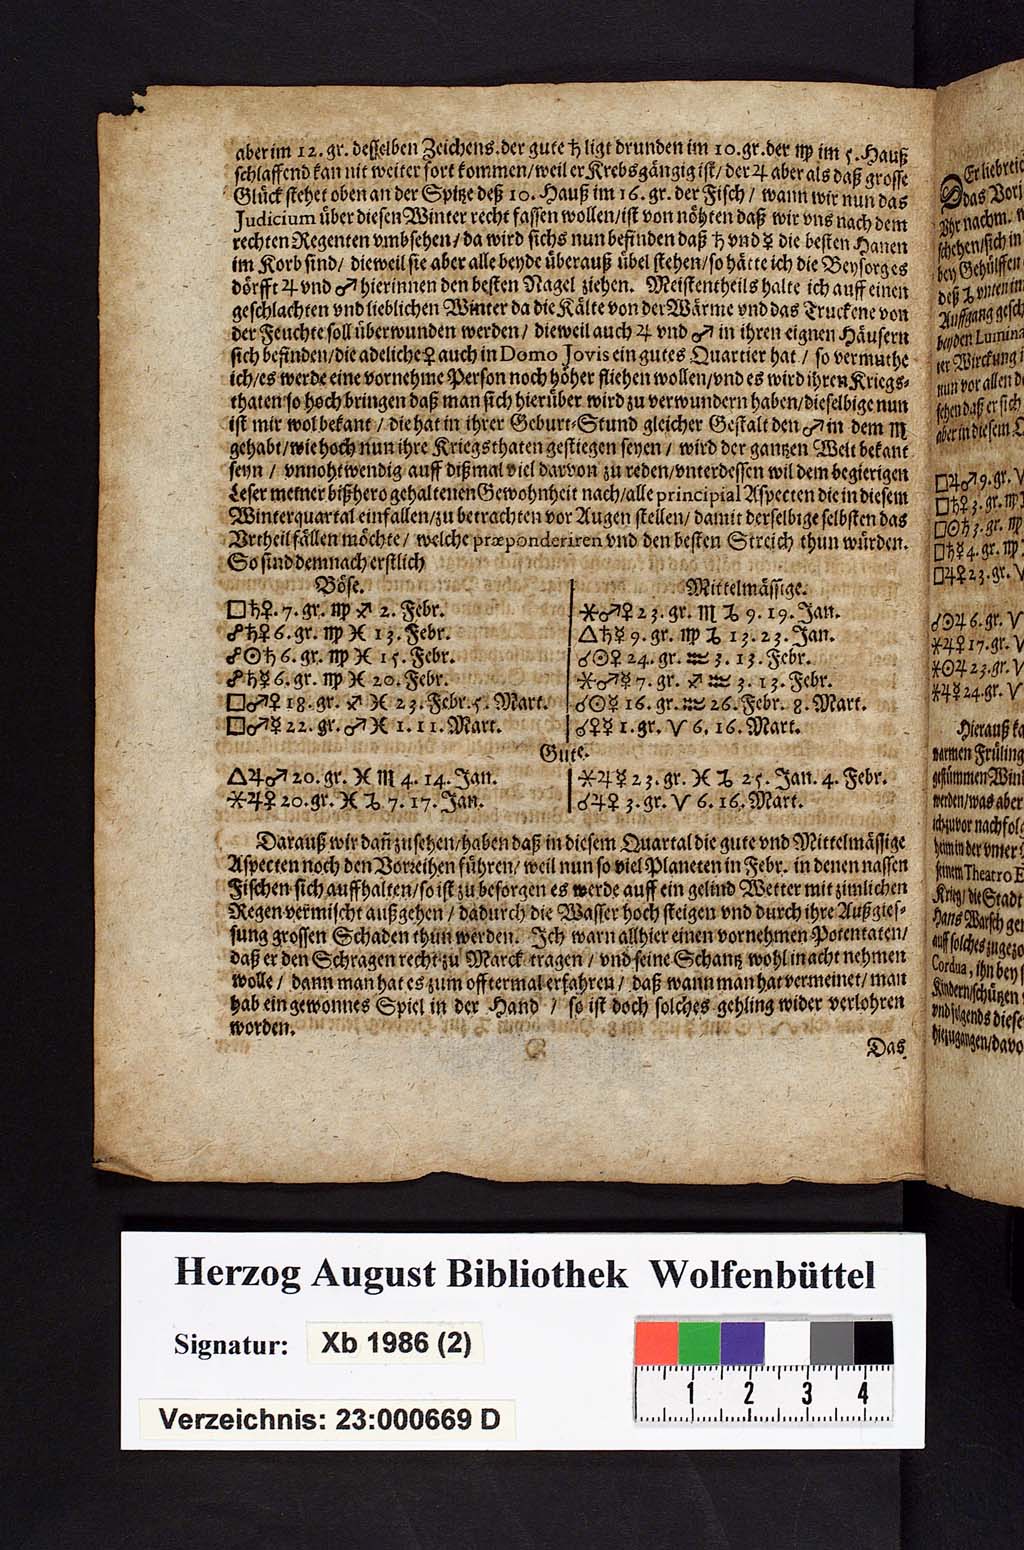 aber im 12. gr. desselben Zeichens. der gute ♄ ligt drunden im 10. gr. der ♍ im 5. Hauß
schlaffend kan nit weiter fort kommen/ weil er Krebsgängig ist/ der ♃ aber als daß grosse
Glück stehet oben an der Spitze deß 10. Hauß im 16. gr. der Fisch / wann wir nun das
Judicium über diesen Winter recht fassen wollen/ ist von nöhten daß wir vns nach dem
rechten Regenten vmbsehen/ da wird sichs nun befinden daß ♄ vnd ☿ die besten Hanen
im Korb sind/ dieweil sie aber alle beyde überauß übel stehen/ so hätte ich die Beysorg es
dörfft ♃ vnd ♂ hierinnen den besten Nagel ziehen. Meistentheils halte ich auff einen
geschlachten vnd lieblichen Winter da die Kälte von der Wärme vnd das Truckene von
der Feuchte soll überwunden werden/ dieweil auch ♃ vnd ♂ in ihren eignen Häusern
sich befinden/ die adeliche ♀ auch in Domo Jovis ein gutes Quartier hat / so vermuthe
ich/ es werde eine vornehme Person noch höher fliehen wollen/ vnd es wird ihren Kriegs-
thaten so hoch bringen daß man sich hierüber wird zu verwundern haben/ dieselbige nun
ist mir wol bekant / die hat in ihrer Geburt-Stund gleicher Gestalt den ♂ in dem ♏
gehabt/ wie hoch nun ihre Kriegsthaten gestiegen seyen / wird der gantzen Welt bekant
seyn / vnnohtwendig auff dißmal viel darvon zu reden/ vnterdessen wil dem begierigen
Leser meiner bißhero gehaltenen Gewohnheit nach/ alle principial Aspecten die in diesem
Winterquartal einfallen/ zu betrachten vor Augen stellen/ damit derselbige selbsten das
Vrtheil fällen möchte/ welche præponderiren vnd den besten Streich thun würden.
So sind demnach erstlich
Böse.
□♄♀. 7. gr. ♍ ♐ 2. Febr.
☍♄♀ 6. gr. ♍ ♓ 13. Febr.
☍☉♄ 6. gr. ♍ ♓ 15. Febr.
☍♄☿ 6. gr. ♍ ♓ 20. Febr.
□♂♀ 18. gr. ♐ ♓ 23. Febr. 5. Mart.
□♂☿ 22. gr. ♂ ♓ 1. 11. Mart.
Mittelmässige.
⚹♂♀ 23. gr. ♏ ♑ 9. 19. Jan.
△♄☿ 9. gr. ♍ ♑ 13. 23. Jan.
☌☉♀ 24. gr. ♒ 3. 13. Febr.
⚹♂☿ 7. gr. ♐ ♒ 3. 13. Febr.
☌☉☿ 16. gr. ♒ 26. Febr. 8. Mart.
☌♀☿ 1. gr. ♈ 6. 16. Mart.
Gute.
△♃♂ 20. gr. ♓ ♏ 4. 14. Jan.
⚹♃♀ 20. gr. ♓ ♑ 7. 17. Jan.
⚹♃☿ 23. gr. ♓ ♑ 25. Jan. 4. Febr.
☌♃♀ 3. gr. ♈ 6. 16. Mart.
Darauß wir dañ zu sehen/ haben daß in diesem Quartal die gute vnd Mittelmässige
Aspecten noch den Vorzeihen führen/ weil nun so viel Planeten in Febr. in denen nassen
Fischen sich auffhalten/ so ist zu besorgen es werde auff ein gelind Wetter mit zimlichen
Regen vermischt außgehen / dadurch die Wasser hoch steigen vnd durch ihre Außgies-
sung grossen Schaden thun werden. Ich warn allhier einen vornehmen Potentaten/
daß er den Schragen recht zu Marck tragen / vnd seine Schantz wohl in acht nehmen
wolle / dann man hat es zum offtermal erfahren / daß wann man hat vermeinet/ man
hab ein gewonnes Spiel in der Hand / so ist doch solches gehling wider verlohren
worden.
Das
Er liebreich
das Vorj
Vhr nachm.
schehen/ sich in
bey Gehülffen
deß ♑ vnten im
Auffgang gesch
beyden Lumina
ter Wirckung
nun vor allen d
sehen daß er sich
aber in diesem
□♃♂ 9. gr. ♈
□♄♀ 3. gr. ♍
□☉♄ 3. gr. ♍
□♄☿ 4. gr. ♍
□♃♀ 23. gr. ♈
☌☉♃ 6. gr. ♈
⚹♃♀ 17. gr. ♈
⚹☉♃ 23. gr. ♈
⚹♃☿ 24. gr. ♈
Hierauß ka
warmen Früling
gestümmen Win
werden/ was aber
ich zuvor nachfolg
hem in der vnter
seinem Theatro E
Krieg/ die Stadt
Hans Warsch gen
auff solches zugezo
Cordua, ihn bey s
Kindern/ schützen
vnd folgends diese
hiezugangen/ davo
Herzog August Bibliothek Wolfenbüttel
Signatur: Xb 1986 (2)
Verzeichnis: 23:000669 D
1 2 3 4